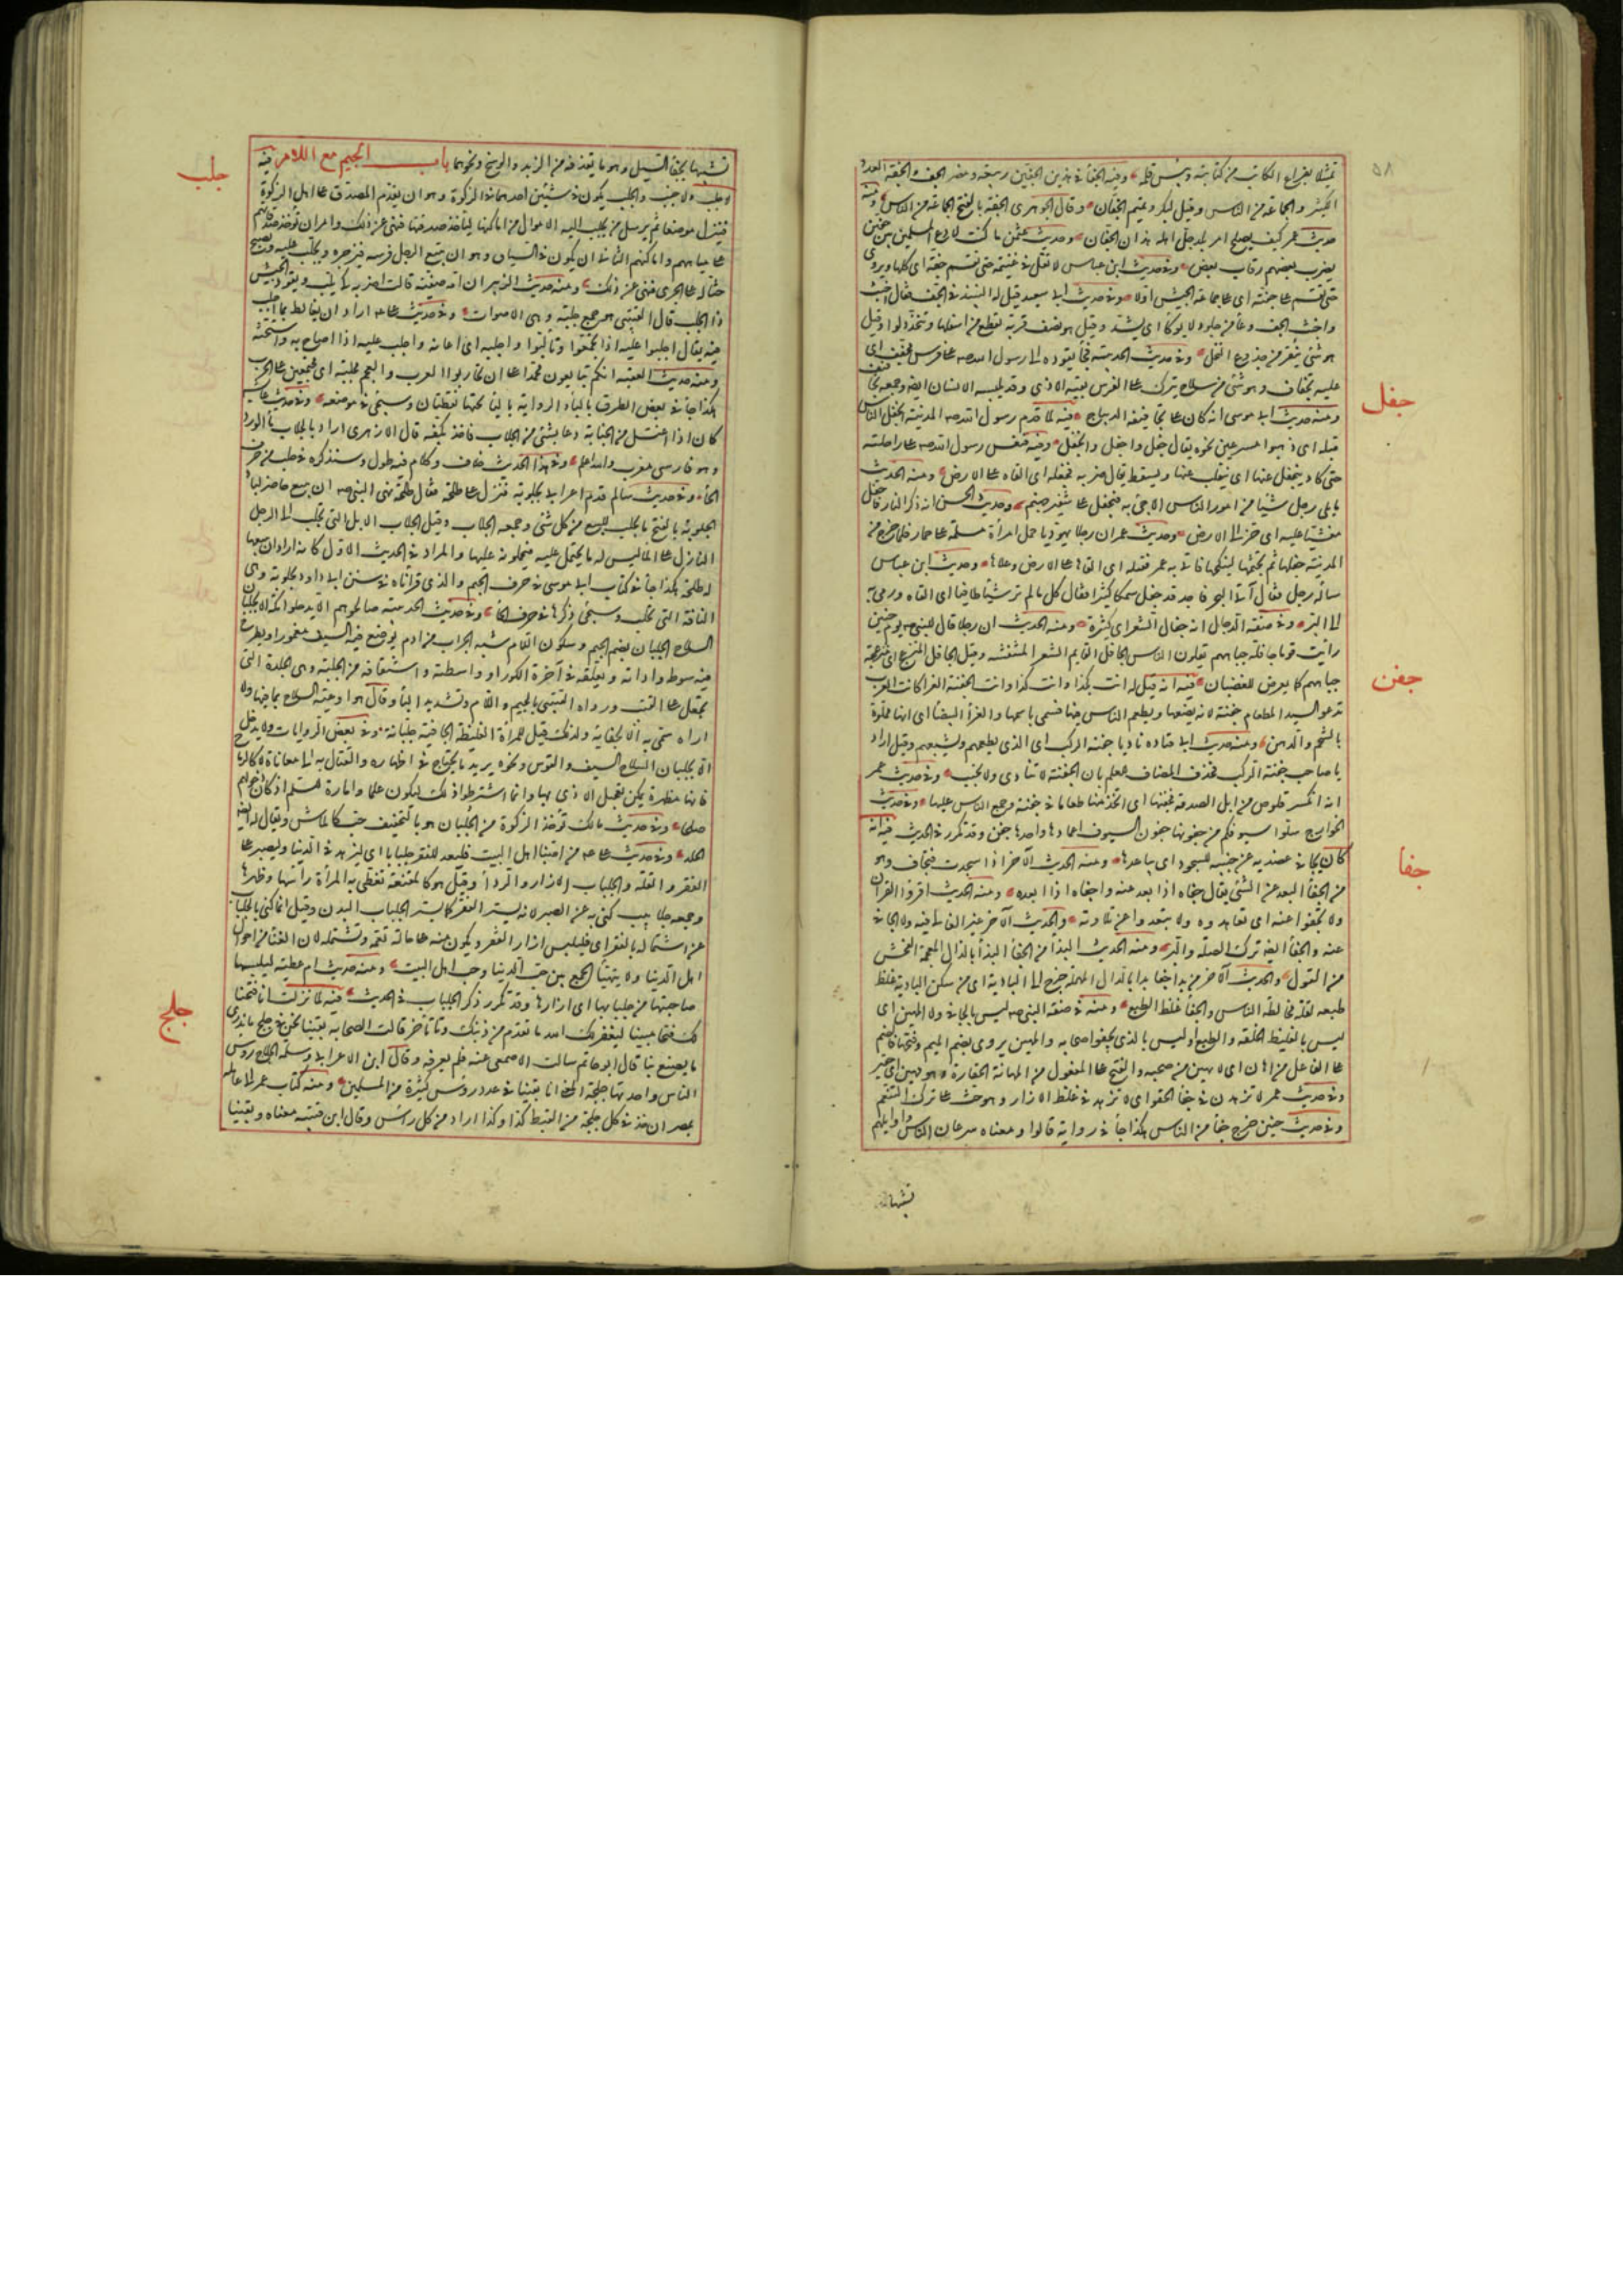 ٥٨
تمثيلا بفراغ الكاتب من كتابته ويبس قلمه وفيه الجفاء في هذين الجفين ربيعة ومضر الجف والجفة العدد
الكثير والجماعة من الناس ومنه قيل لبكر وتميم الجفان وقال الجوهري الجفة بالفتح الجماعة من الناس ومنه
حديث عمر كيف يصلح امر بلد جل اهله هذان الجفان وحديث عثمن ما كنت لادع المسلمين بين جفين
يضرب بعضهم رقاب بعض وفي حديث ابن عباس لا نفل في غنيمة حتى تقسم جفة اي كلها ويروى
حتى تقسم على جفته اي على جماعة الجيش اولا وفي حديث ابي سعيد قيل له النبيذ في الجف فقال اخبث
واخبث الجف وعاء من جلود لا يوكأ اي لا يشد وقيل هو نصف قربة تقطع من اسفلها وتتخذ دلوا وقيل
هو شئ ينقر من جذوع النخل وفي حديث الحديبية فجاء يقوده الى رسول الله صه على فرس مجفف اي
عليه تجفاف وهو شئ من سلاح يترك على الفرس يقيه الاذى وقد يلبسه الانسان ايضا وجمعه تجافيف
ومنه حديث ابي موسى انه كان على تجافيفه الديباج فيه لما قدم رسول الله صه المدينة انجفل الناس
جفل
قبله اي ذهبوا مسرعين نحوه يقال جفل واجفل وانجفل وفيه فنعس رسول الله صه على راحلته
حتى كاد ينجفل عنها اي ينقلب عنها ويسقط يقال ضربه فجفله اي القاه على الارض ومنه الحديث
ما يلي رجل شيئا من امور الناس الا جئ به فيجفل على شفير جهنم وحديث الحسن انه ذكر النار فاجفل
مغشيا عليه اي خر الى الارض وحديث عمر ان رجلا يهوديا حمل امرأة مسلمة على حمار فلما خرج من
المدينة جفلها ثم تجثمها لينكحها فاتي به عمر فقتله اي القاها على الارض وعلاها وحديث ابن عباس
سأله رجل فقال آتي البحر فاجده قد جفل سمكا كثيرا فقال كل ما لم تر شيئا طافيا اي القاه ورمى به
الى البر وفي صفة الدجال انه جفال الشعر اي كثيره ومنه الحديث ان رجلا قال للنبي صه يوم حنين
رأيت قوما جافلة جباههم يقتلون الناس الجافل القايم الشعر المنتفشه وقيل الجافل المنزعج اي منزعجة
جباههم كما يعرض للغضبان فيه انه قيل له انت كذا وانت كذا وانت الجفنة الغرا كانت العرب
جفن
تدعو السيد المطعام جفنة لانه يضعها ويطعم الناس فيها فسمي باسمها والغراء البيضاء اي انها مملوة
بالشحم والدهن ومنه حديث ابي قتاده ناد يا جفنة الركب اي الذي يطعمهم ويشبعهم وقيل اراد
يا صاحب جفنة الركب فحذف المضاف للعلم بان الجفنة لا تنادى ولا تجيب وفي حديث عمر
انه انكسر قلوص من ابل الصدقة فجفنها اي اتخذ منها طعاما في جفنة وجمع الناس عليها وفي حديث
الخوارج سلوا سيوفكم من جفونها جفون السيوف اغمادها واحدها جفن وقد تكرر في الحديث فيه انه
كان يجافي عضديه عن جنبيه للسجود اي يباعدها ومنه الحديث الآخر اذا سجدت فتجاف وهو
جفا
من الجفاء البعد عن الشئ يقال جفاه اذا بعد عنه واجفاه اذا ابعده ومنه الحديث اقرؤا القرآن
ولا تجفوا عنه اي تعاهدوه ولا تبعدوا عن تلاوته والحديث الآخر غير الغالي فيه ولا الجافي
عنه والجفاء ايضا ترك الصلة والبر ومنه الحديث البذاء من الجفاء البذاء بالذال المعجمة الفحش
من القول والحديث الآخر من بدا جفا بدا بالدال المهملة خرج الى البادية اي من سكن البادية غلظ
طبعه لقلة مخالطة الناس والجفاء غلظ الطبع ومنه في صفة النبي صه ليس بالجافي ولا المهين اي
ليس بالغليظ الخلقة والطبع او ليس بالذي يجفو اصحابه والمهين يروى بضم الميم وفتحها فالضم
على الفاعل من اهان اي لا يهين من صحبه والفتح على المفعول من المهانة الحقارة وهو مهين اي حقير
وفي حديث عمر لا تزهدن في جفاء الحقو اي لا تزهد في غلظ الازار وهو حث على ترك التنعم
وفي حديث حنين خرج جفاء من الناس هكذا جاء في رواية قالوا ومعناه سرعان الناس واوايلهم
تشبيها
تشبيها بجفاء السيل وهو ما يقذفه من الزبد والوسخ ونحوهما باب الجيم مع اللام فيه
جلب
لا جلب ولا جنب والجلب يكون في شيئين احدهما في الزكوة وهو ان يقدم المصدق على اهل الزكوة
فينزل موضعا ثم يرسل من يجلب اليه الاموال من اماكنها ليأخذ صدقتها فنهي عن ذلك وامر ان تؤخذ صدقاتهم
على مياههم واماكنهم الثاني ان يكون في السباق وهو ان يتبع الرجل فرسه فيزجره ويجلب عليه ويصيح
حثا له على الجري فنهي عن ذلك ومنه حديث الزبير ان امه صفية قالت اضربه كي يلب ويقود الجيش
ذا الجلب قال القتيبي هو جمع جلبة وهي الاصوات وفي حديث على عه اراد ان يغالط بما اجلب
فيه يقال اجلبوا عليه اذا تجمعوا وتألبوا واجلبه اي اعانه واجلب عليه اذا صاح به واستحثه
ومنه حديث العقبة انكم تبايعون محمدا على ان تحاربوا العرب والعجم مجلبة اي مجتمعين على الحرب
هكذا جاء في بعض الطرق بالباء والرواية بالياء تحتها نقطتان وسيجئ في موضعه وفي حديث عايشة
كان اذا اغتسل من الجنابة دعا بشئ من الجلاب فاخذ بكفه قال الازهري اراد بالجلاب ماء الورد
وهو فارسي معرب والله اعلم وفي هذا الحديث خلاف وكلام فيه طول وسنذكره في حلب من حرف
الحاء وفي حديث سالم قدم اعرابي بجلوبة فنزل على طلحة فقال طلحة نهى النبي صه ان يبيع حاضر لباد
الجلوبة بالفتح ما يجلب للبيع من كل شئ وجمعه الجلايب وقيل الجلايب الابل التي تجلب الى الرجل
النازل على الماء ليس له ما يحتمل عليه فيحملونه عليها والمراد في الحديث الاول كانه اراد ان يبيعها
له طلحة هكذا جاء في كتاب ابي موسى في حرف الجيم والذي قرأناه في سنن ابي داود بحلوبة وهي
الناقة التي تحلب وسيجئ ذكرها في حرف الحاء وفي حديث الحديبية صالحوهم الا يدخلوا مكة الا بجلبان
السلاح الجلبان بضم الجيم وسكون اللام شبه الجراب من ادم يوضع فيه السيف مغمودا ويطرح
فيه سوطه واداته ويعلقه في آخرة الكور او واسطته واشتقاقه من الجلبة وهي الجلدة التي
تجعل على القتب ورواه القتيبي بالجيم واللام وتشديد الباء وقال هو اوعية السلاح بما فيها ولا
اراه سمي به الا لجفائه ولذلك قيل للمرأة الغليظة الجافية جلبانة وفي بعض الروايات ولا يدخلها
الا بجلبان السلاح السيف والقوس ونحوه يريد ما يحتاج في اظهاره والقتال به الى معاناة لا كالرماح
فانها مظهرة يمكن تعجيل الاذى بها وانما اشترطوا ذلك ليكون علما وامارة للسلم اذ كان دخولهم
صلحا وفي حديث مالك تؤخذ الزكوة من الجلبان هو بالتخفيف حب كالماش ويقال له ايضا
الخلر وفي حديث على عه من احبنا اهل البيت فليعد للفقر جلبابا اي ليزهد في الدنيا وليصبر على
الفقر والقلة والجلباب الازار والرداء وقيل هو كالمقنعة تغطي به المرأة رأسها وظهرها
وجمعه جلابيب كنى به عن الصبر لانه يستر الفقر كما يستر الجلباب البدن وقيل انما كنى بالجلباب
عن اشتماله بالفقر اي فليلبس ازار الفقر ويكون منه على حالة تعمه وتشتمله لان الغنى من احوال
اهل الدنيا ولا يتهيأ الجمع بين حب الدنيا وحب اهل البيت ومنه حديث ام عطية لتلبسها
صاحبتها من جلبابها اي ازارها وقد تكرر ذكر الجلباب في الحديث فيه لما نزلت انا فتحنا
جلج
لك فتحا مبينا ليغفر لك الله ما تقدم من ذنبك وما تأخر قالت الصحابة بقينا نحن في جلج لا ندري
ما يصنع بنا قال ابو حاتم سألت الاصمعي عنه فلم يعرفه وقال ابن الاعرابي وسلمة الجلاج رؤس
الناس واحدتها جلجة المعنى انا بقينا في عدد رؤس كثيرة من المسلمين ومنه كتاب عمر الى عامله
بمصر ان خذ في كل جلجة من القبط كذا وكذا اراد من كل رأس وقال ابن قتيبة معناه وبقينا